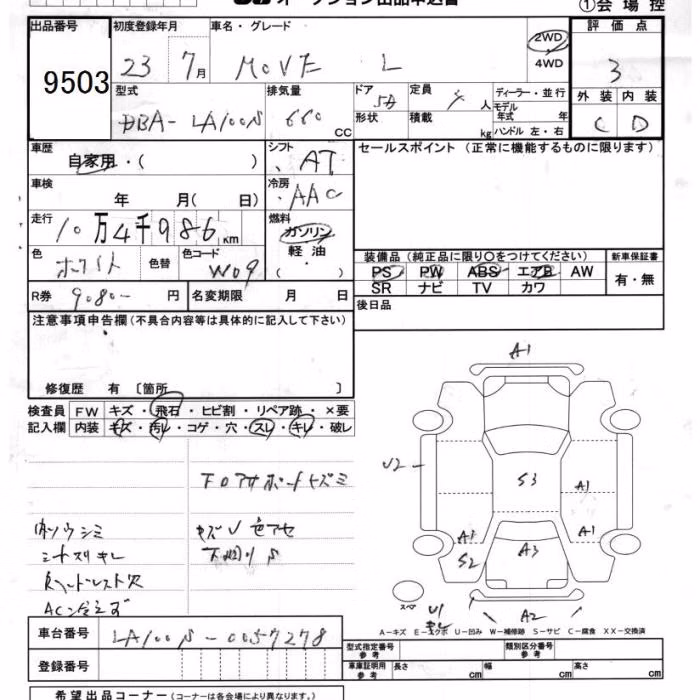 ①会場控
出品番号
9503
初度登録年月
23 7月
車名・グレード
MOVE L
2WD
4WD
評価点
3
型式
DBA-LA100S
排気量
660 cc
ドア
5D
形状
定員
人
積載
kg
ディーラー・並行
モデル年式 年
ハンドル 左・右
外装 内装
C D
車歴
自家用・( )
シフト
AT
車検
年 月( 日)
冷房
AAC
走行
10万4千986km
燃料
ガソリン
軽油
( )
色
ホワイト
色替
色コード
W09
R券 9080- 円
名変期限 月 日
セールスポイント(正常に機能するものに限ります)
装備品(純正品に限り○をつけてください)
新車保証書
PS PW ABS エアB AW
SR ナビ TV カワ
有・無
後日品
注意事項申告欄(不具合内容等は具体的に記入して下さい)
修復歴 有 〔箇所 〕
検査員記入欄
FW キズ・飛石・ヒビ割・リペア跡・×要
内装 キズ・汚レ・コゲ・穴・スレ・キレ・破レ
キズU色アセ
内ソウシミ
シートスリキレ
ヘッドレスト穴
AC冷えず
A1
U2
S3
A1
A1
A1
S2
A3
スペア
U1
キレ
A2
A-キズ E-エクボ U-凹み W-補修跡 S-サビ C-腐食 XX-交換済
車台番号
LA100S-0057278
登録番号
型式指定番号 参考
類別区分番号 参考
車庫証明用 参考
長さ cm
幅 cm
高さ cm
希望出品コーナー(コーナーは各会場により異なります。)